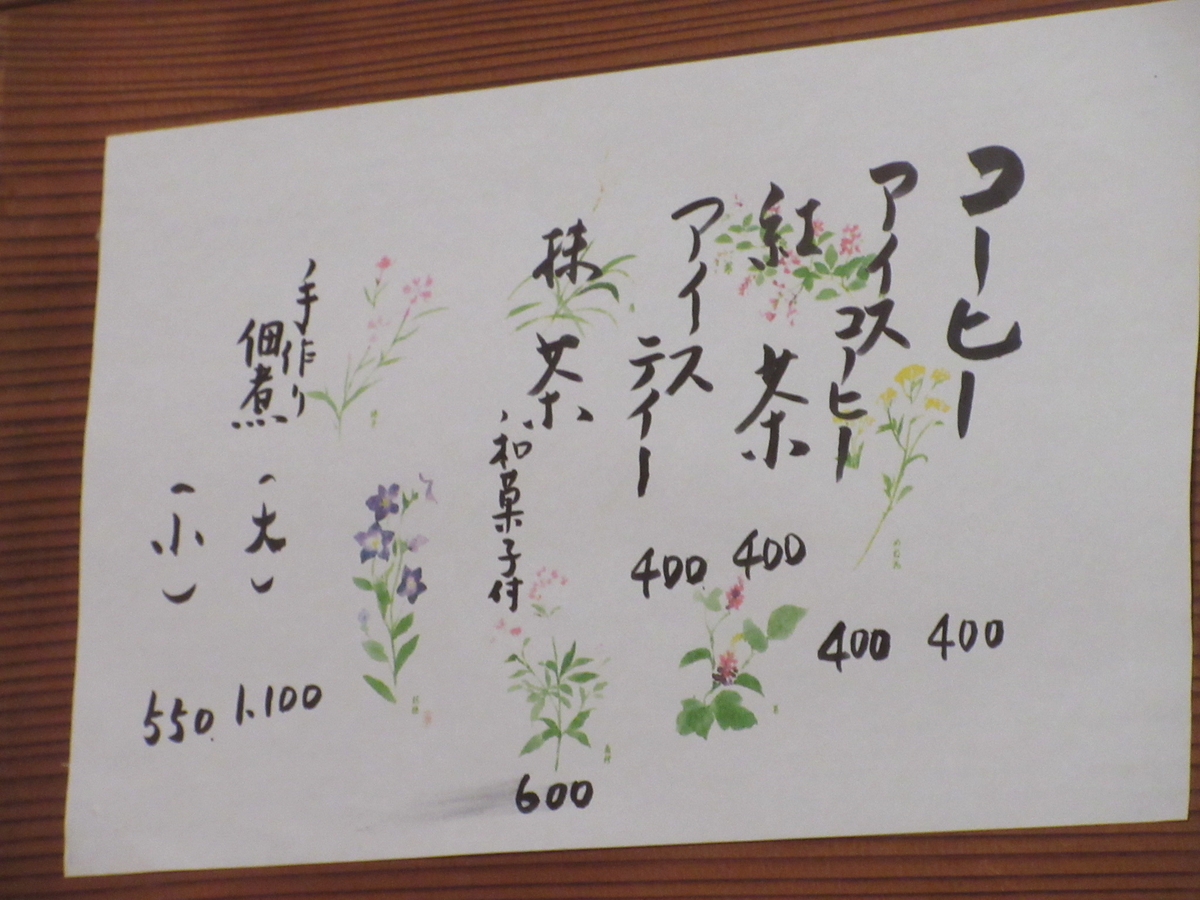 コーヒー 400
アイスコーヒー 400
紅茶 400
アイスティー 400
抹茶 和菓子付 600
手作り
佃煮
(大) 1,100
(小) 550